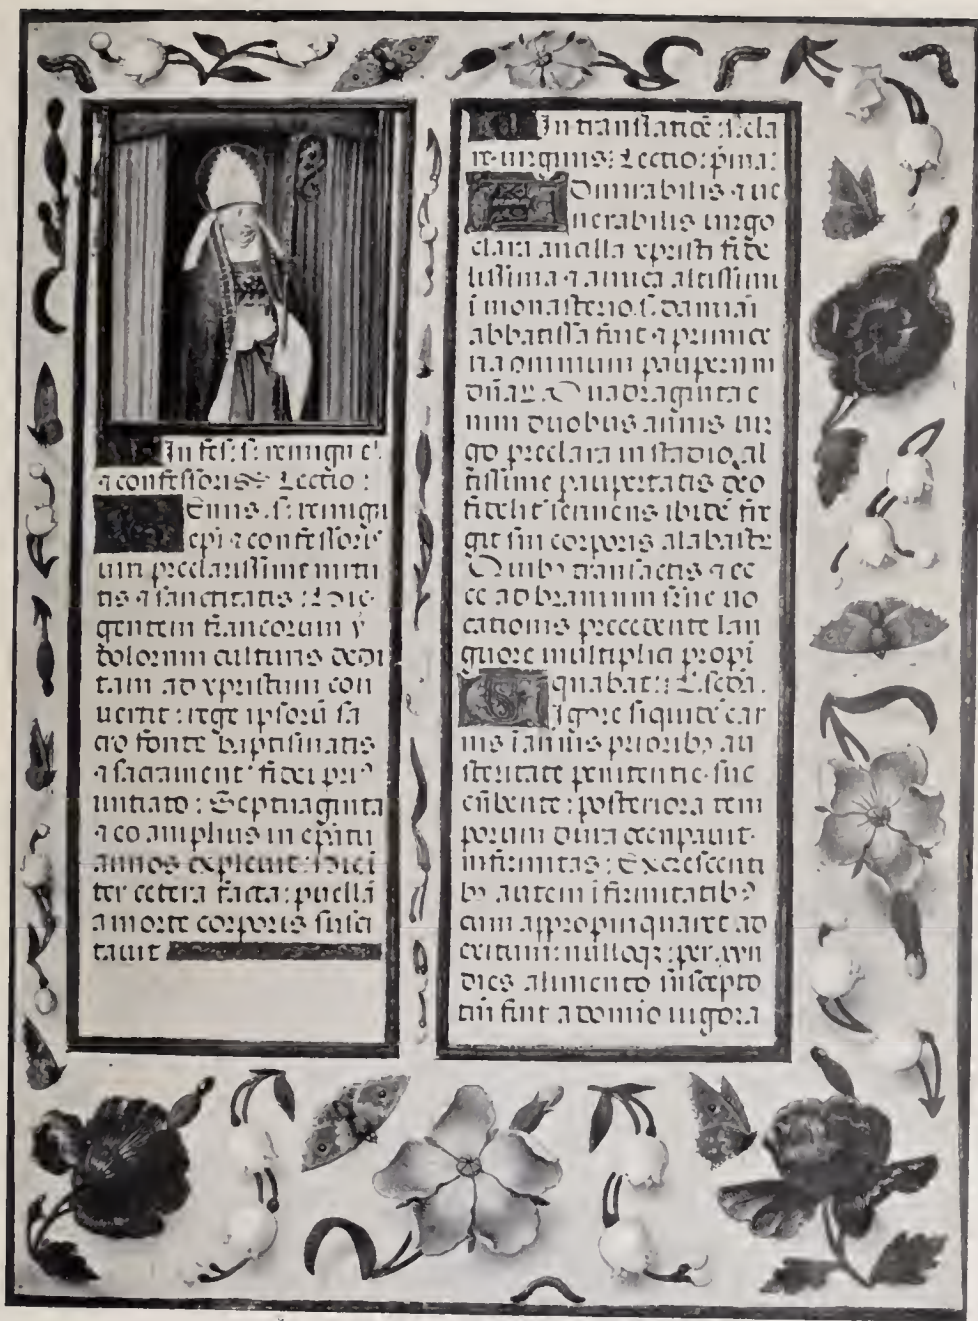 In fest. s. remigii ep̄i
⁊ confessoris. Lectio:
Enus. s. remigii
epi ⁊ confessoris
uiri preclarissime uirtu
tis ⁊ sanctitatis: Hic
gentem francorum y
dolorum cultuis dedi
tam ad xpristum con
uertit: rege ipsorū sa
cro fonte baptismatis
⁊ sacrament' fidei pri⁹
initiato: Septuaginta
⁊ eo amplius in ep̄atu
annos expleuit: Hic ī
ter cetera facta: puellā
a morte corporis susci
tauit
In translatiōe s. cla
re uirginis: Lectio: p̄ma:
Dmirabilis ⁊ ue
nerabilis uirgo
clara ancilla xpristi fide
lissima ⁊ amica altissimi
ī monasterio. s. damiai
abbatissa fuit ⁊ primice
ria omnium pauperum
dn̄aꝝ. Quadraginta e
nim duobus annis uir
go preclara in stadio al
tissime paupertatis deo
fidelit' seruiens ibidē fre
git sui corporis alabastꝝ
Quibꝰ transactis ⁊ ec
ce ad brauium sūe uo
cationis precedente lan
guore multiplici propī
quabat: L. scḋa.
Igore siquidē car
nis ī annis prioribꝰ au
steritate penitentie suc
cūbente: posteriora tem
porum dura occupauit
infirmitas: Excrescenti
bꝰ autem īfirmitatibꝰ
cum appropinquaret ad
exitum: nulloqꝫ: per .xvii
dies alimento suscepto
tm̄ fuit a domīo uigora